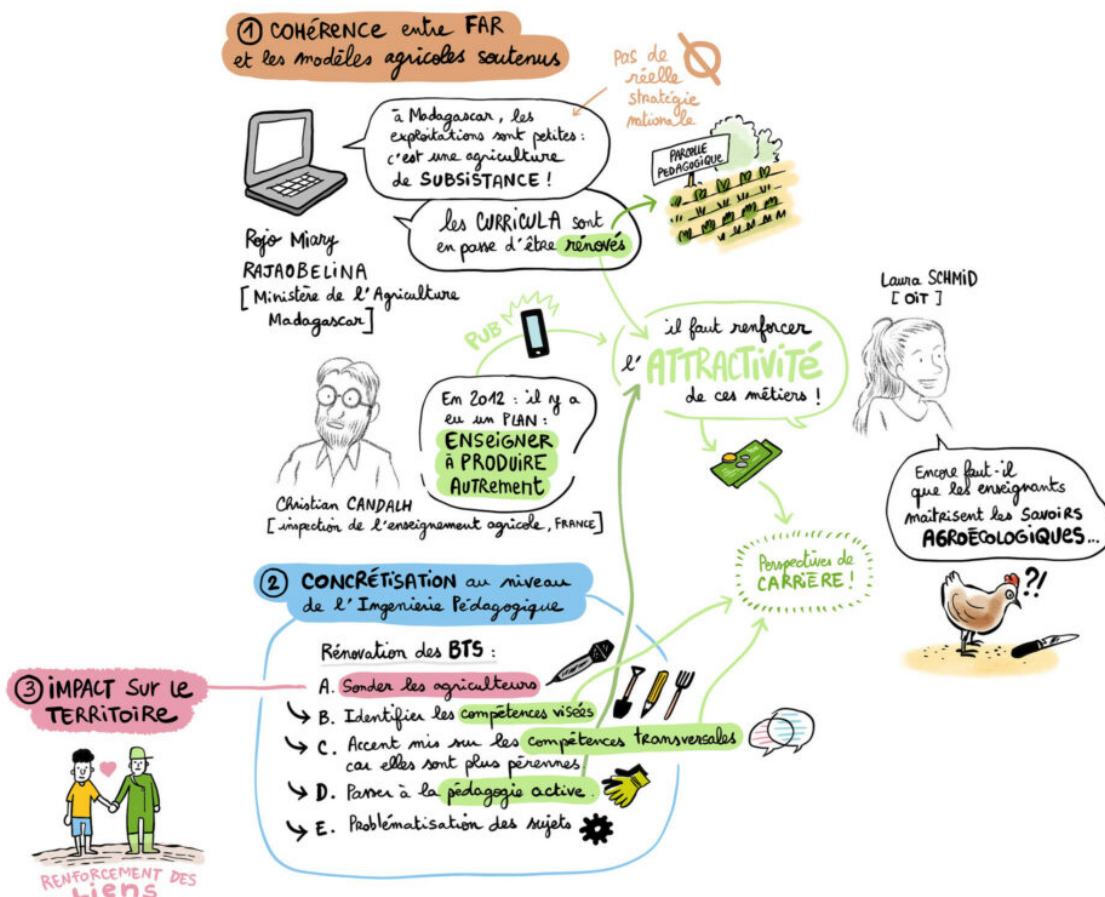 ① COHÉRENCE entre FAR
et les modèles agricoles soutenus
Pas de
réelle
stratégie
nationale
à Madagascar, les
exploitations sont petites :
c'est une agriculture
de SUBSISTANCE !
PARCELLE
PEDAGOGIQUE
les CURRICULA sont
en passe d'être rénovés
Rojo Miary
RAJAOBELINA
[Ministère de l'Agriculture
Madagascar]
Laura SCHMID
[OIT]
PUB
il faut renforcer
l'ATTRACTIVITÉ
de ces métiers !
En 2012 : il y a
eu un PLAN :
ENSEIGNER
à PRODUIRE
AUTREMENT
Christian CANDALH
[inspection de l'enseignement agricole, FRANCE]
Encore faut-il
que les enseignants
maîtrisent les savoirs
AGROÉCOLOGIQUES...
?!
Perspectives de
CARRIÈRE !
② CONCRÉTISATION au niveau
de l'Ingenierie Pédagogique
Rénovation des BTS :
A. Sonder les agriculteurs
B. Identifier les compétences visées
C. Accent mis sur les compétences transversales
car elles sont plus pérennes
D. Passer à la pédagogie active.
E. Problématisation des sujets
③ IMPACT sur le
TERRITOIRE
RENFORCEMENT DES
liens